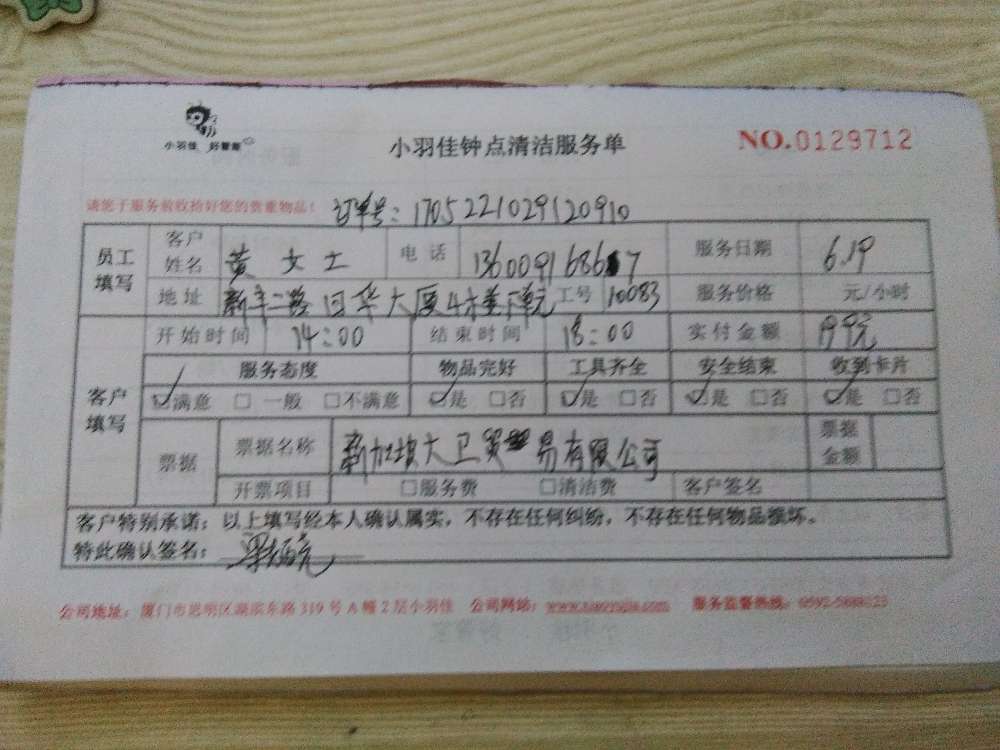 小羽佳 好管家
小羽佳钟点清洁服务单
NO.0129712
请您于服务前收拾好您的贵重物品！ 订单号：170522102912091​0
员工填写 客户姓名 黄女士 电话 服务日期 6.19
地址 日华大厦 工号 10083 服务价格 元/小时
客户填写 开始时间 14:00 结束时间 18:00 实付金额 199元
服务态度 物品完好 工具齐全 安全结束 收到卡片
☑满意 □一般 □不满意 ☑是 □否 ☑是 □否 ☑是 □否 ☑是 □否
票据 票据名称 新加坡大卫贸易有限公司 票据金额
开票项目 □服务费 □清洁费 客户签名
客户特别承诺：以上填写经本人确认属实，不存在任何纠纷，不存在任何物品损坏。
特此确认签名：
公司地址：厦门市思明区湖滨东路319号A幢2层小羽佳 公司网站： 服务监督热线：